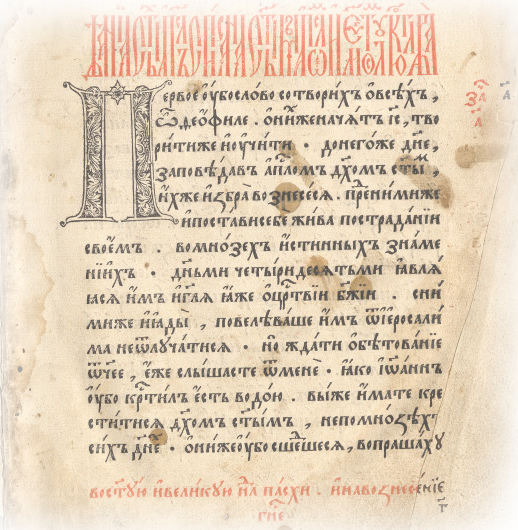 Первое ᲂу҆бо сло́во сотвори́хъ ѡ҆ всѣ́хъ,
ѽ ѳео́филе. ѡ҆ ни́хже нача́тъ і҆с҃, тво
ри́ти же и҆ ᲂу҆чи́ти · до него́же дн҃е,
заповѣ́давъ а҆пⷭ҇ломъ дх҃омъ ст҃ы́мъ
и҆́хже и҆збра̀ вознесе́сѧ. пре́ⷣ ни́миже
и҆ поста́ви себѐ жи́ва по страда́нїи
свое́мъ . во мно́зехъ и҆́стинныхъ зна́ме
нїихъ · дн҃ьми четы́ридесѧтьми ꙗ҆влѧ́
ꙗсѧ и҆́мъ и҆ гл҃ѧ ꙗ҆́же ѡ҆ црⷭ҇твїи бж҃їи . сни́
миже и҆ ꙗ҆ды̀ , повелѣва́ше и҆́мъ ѿ і҆еросали́
ма не ѿлꙋча́тисѧ · но̀ жда́ти ѡ҆бѣтова́нїе
ѻ҆́ч҃ее , є҆́же слы́шасте ѿ менѐ · ꙗ҆́ко і҆ѡ҃а́ннъ
ᲂу҆́бо крⷭ҇ти́лъ є҆́сть водо́ю . вы́ же и҆́мате кре
сти́тисѧ дх҃омъ ст҃ы́мъ , не по мно́ꙃѣхъ
си́хъ дн҃е · ѻ҆ни́же ᲂу҆́бо сше́дшесѧ , вопраша́хꙋ
во ст҃ꙋ́ю и҆ вели́кꙋю нⷣлѧ па́схи . и҆ на вознесе́нїе
гⷭ҇не